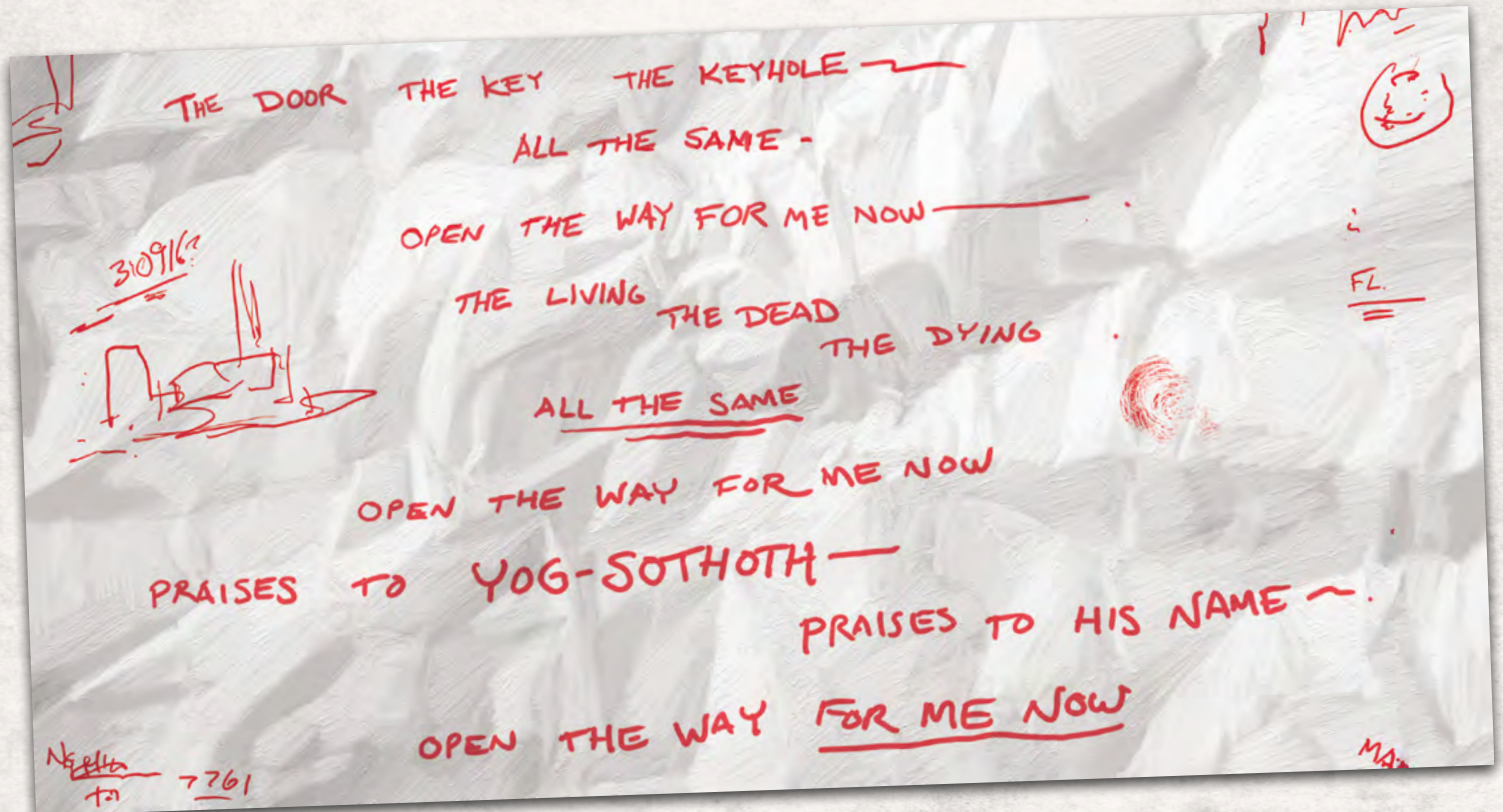 THE DOOR THE KEY THE KEYHOLE —
ALL THE SAME -
OPEN THE WAY FOR ME NOW —
310916?
THE LIVING
THE DEAD
THE DYING
FL.
ALL THE SAME
OPEN THE WAY FOR ME NOW
PRAISES TO YOG-SOTHOTH —
PRAISES TO HIS NAME ~.
OPEN THE WAY FOR ME NOW
7761